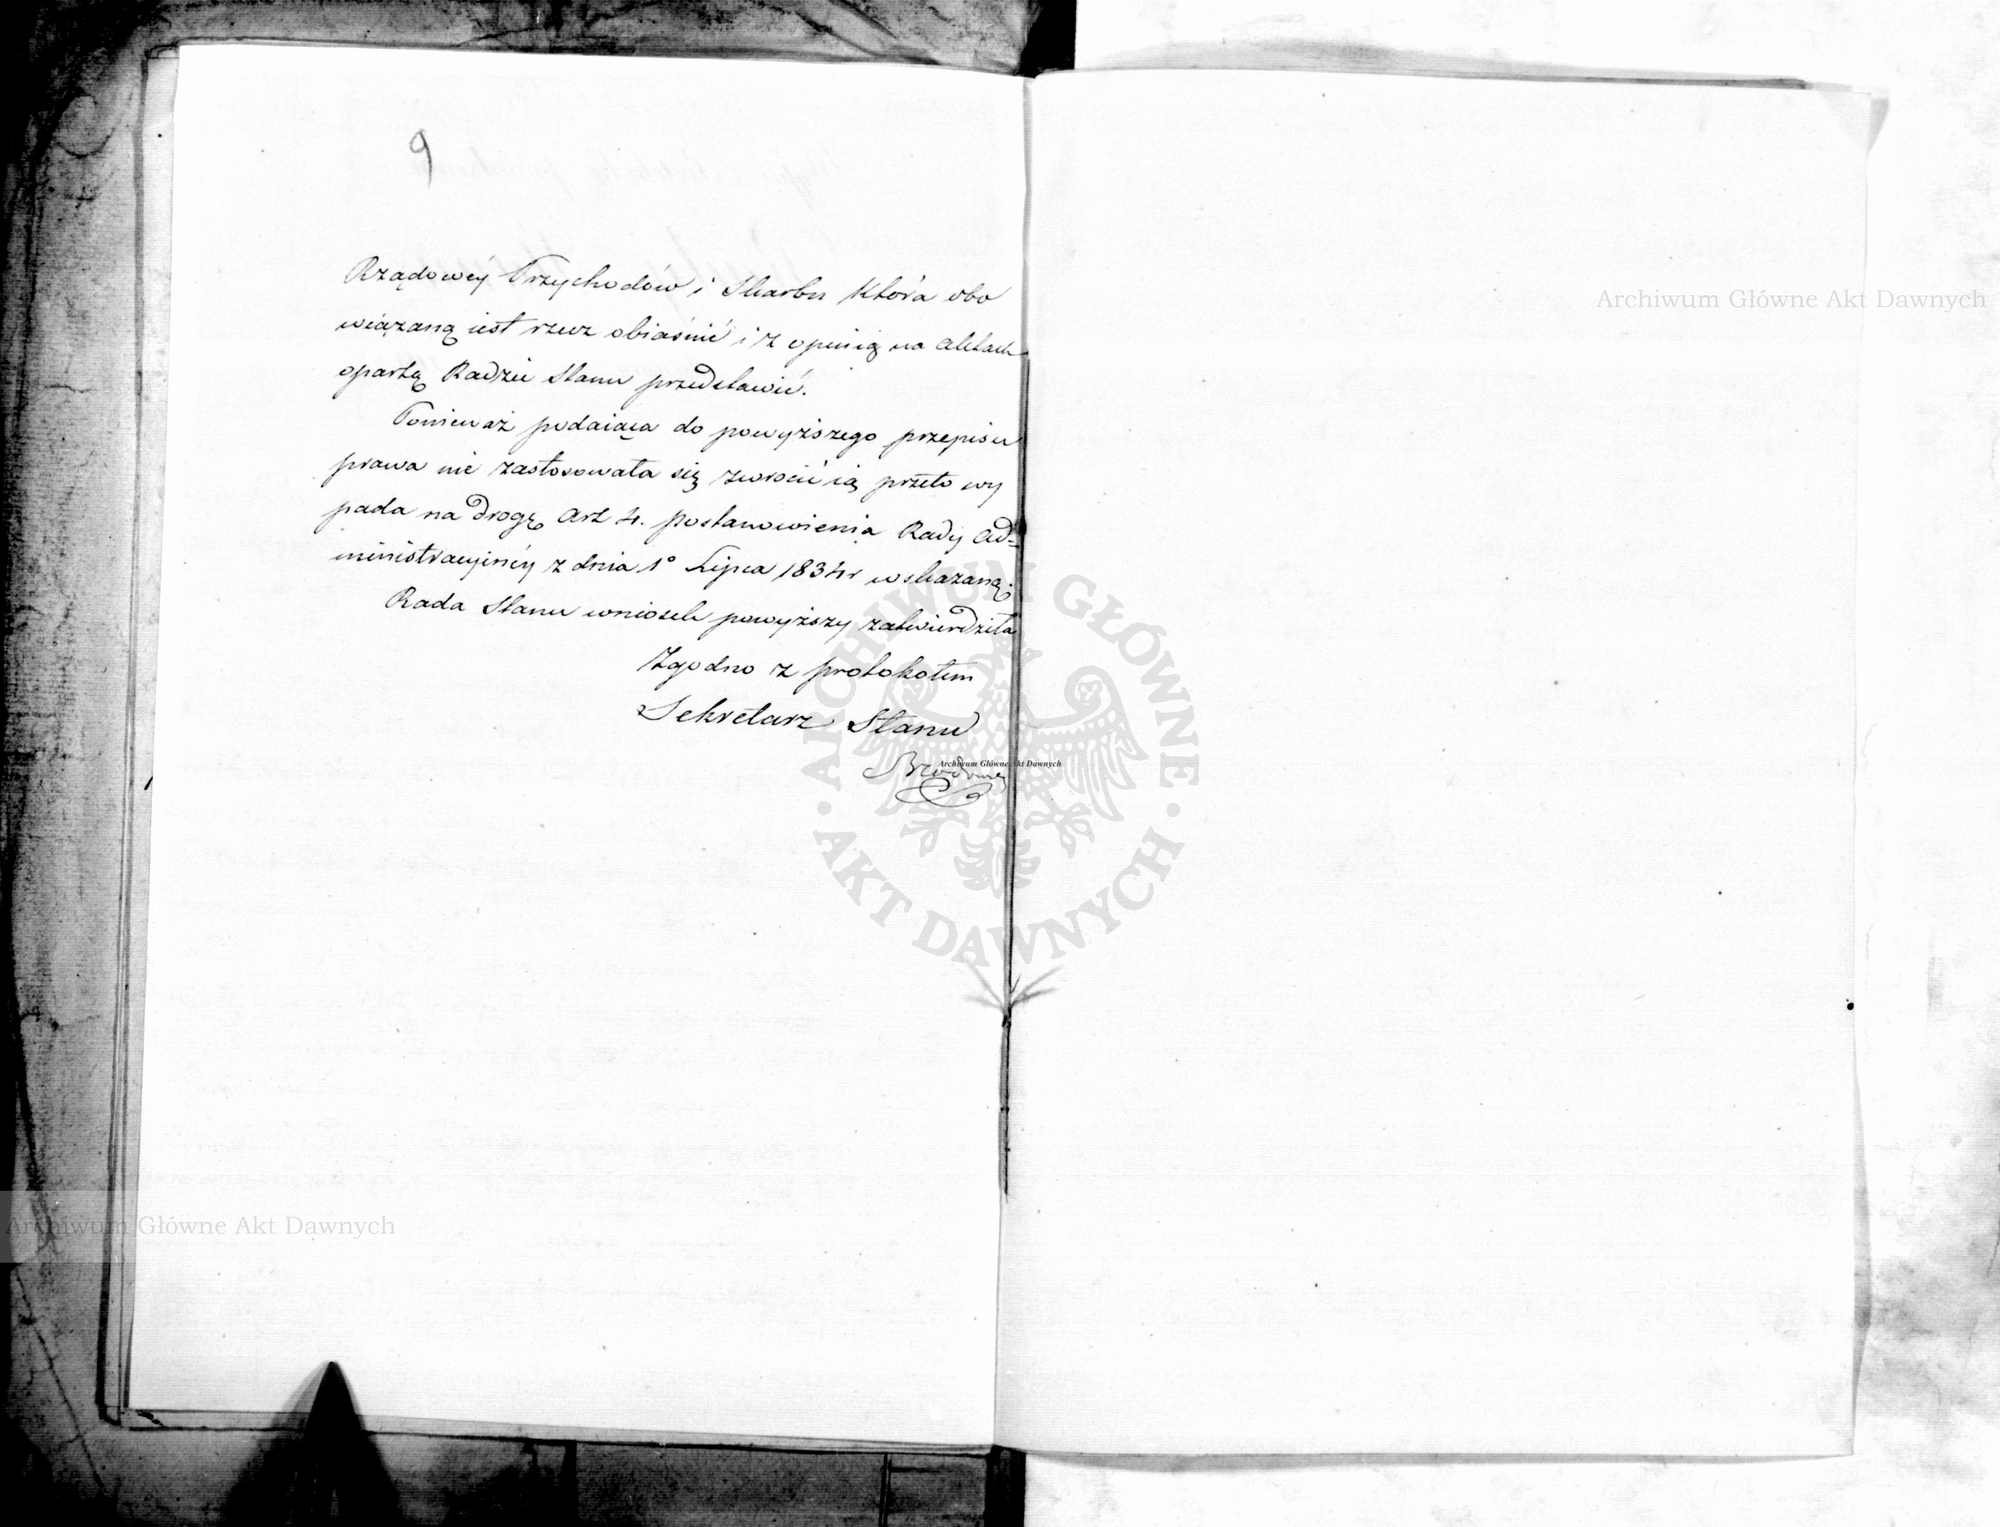 9
Rządowéy Przychodów i Skarbu która obo
wiązaną iest rzecz obiaśnić i z opinią na aktach
opartą Radzie Stanu przedstawić.
Ponieważ podaiąca do powyższego przepisu
prawa nie zastosowała się zwrócić ią przeto wy
pada na drogę Art 4. postanowienia Rady Ad=
ministracyinéy z dnia 1° Lipca 1834r wskazaną.
Rada Stanu wniosek powyższy zatwierdziła
Zgodno z protokołem
Sekretarz Stanu
Archiwum Główne Akt Dawnych
ARCHIWUM GŁÓWNE AKT DAWNYCH
Archiwum Główne Akt Dawnych
Archiwum Główne Akt Dawnych